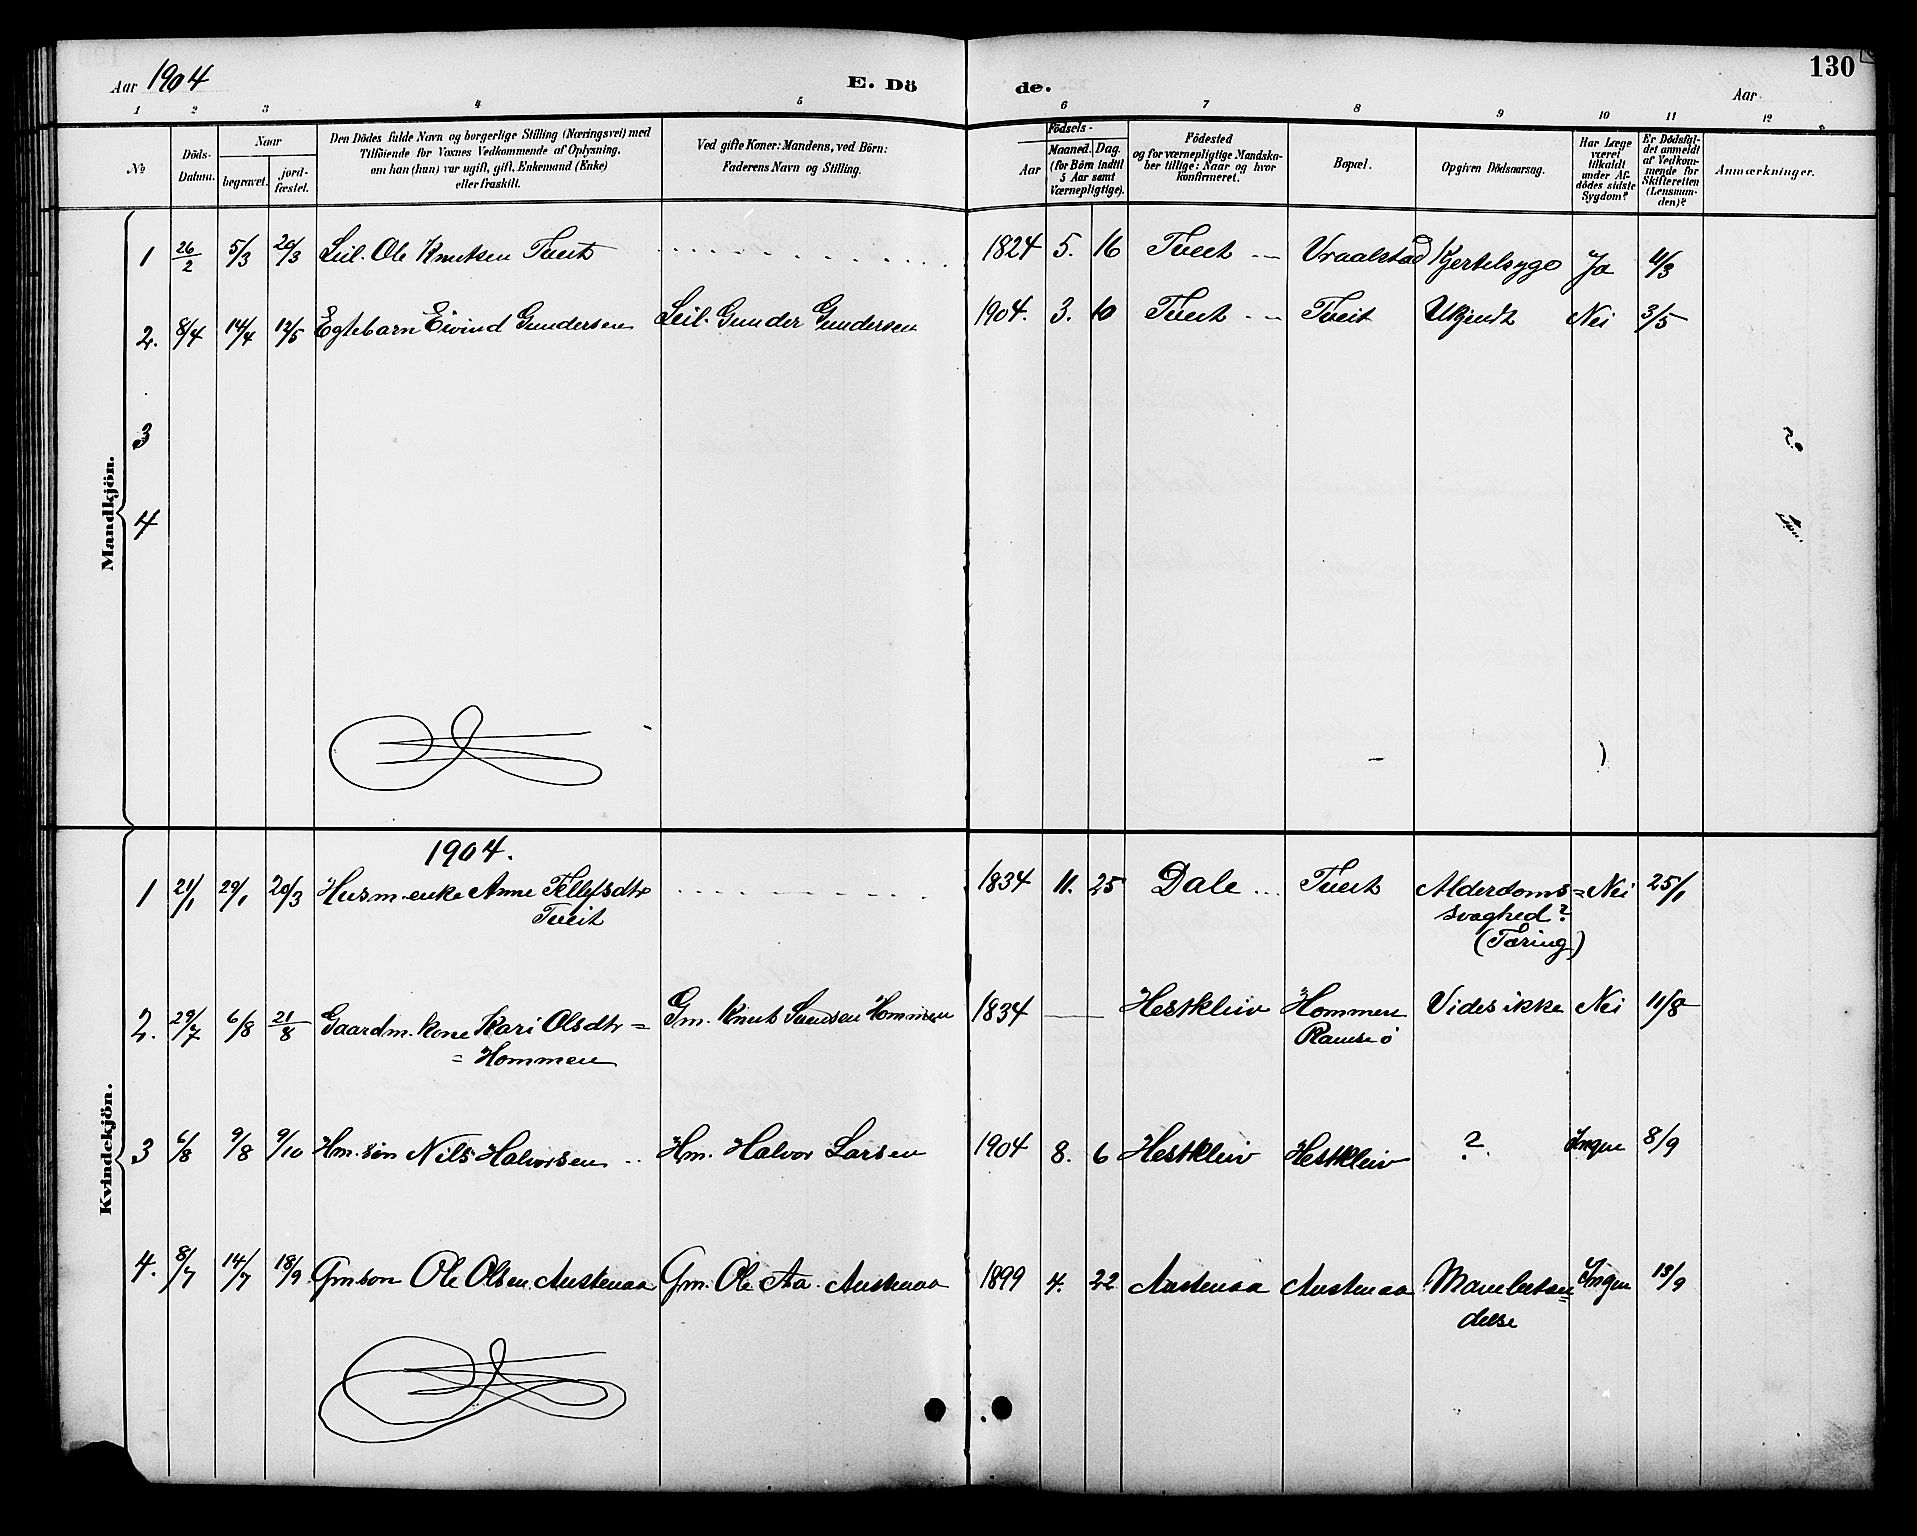 130
Aar 1904
E. Dö
de.
Aar
1 2 3 4 5 6 7 8 9 10 11 12
No
Döds-Datum.
Naar
begravet.
jord-fæstet.
Den Dödes fulde Navn og borgerlige Stilling (Næringsvei) med
Tilföiende for Voxnes Vedkommende af Oplysning,
om han (hun) var ugift, gift, Enkemand (Enke)
eller fraskilt.
Ved gifte Koner: Mandens, ved Börn:
Faderens Navn og Stilling.
Födsels-
Aar
Maaned.
Dag.
(for Börn indtil
5 Aar samt
Værnepligtige).
Födested
og for værnepligtige Mandska-
ber tillige: Naar og hvor
konfirmeret.
Bopæl.
Opgiven Dödsaarsag.
Har Læge
været
tilkaldt
under Af-
dödes sidste
Sygdom?
Er Dödsfal-
det anmeldt
af Vedkom-
mende for
Skifteretten
(Lensman-
den)?
Anmærkninger.
Mandkjön.
1 26/2 5/3 20/3 Leil. Ole Knutsen Tveit 1824 5. 16 Tveit Vraalstad Kjertelsyge Ja 4/3
2. 8/4 14/4 12/5 Egtebarn Eivind Gundersen Leil. Gunder Gundersen 1904. 3. 10 Tveit Tveit Ukjendt Nei 3/5
3
4
Kvindekjön.
1904.
1 21/1 29/1 20/3 Husm. enke Anne Tellefsdtr 1834 11. 25 Dale Tveit Alderdoms= Nei 25/1
Tveit svaghed?
(Tæring)
2. 29/7 6/8 21/8 Gaardm. kone Kari Olsdtr= Gm. Knut Svensen Hommen 1834 — Hestkleiv Hommen Vides ikke Nei 11/8
= Hommen Ramse ø
3 6/8 9/8 9/10 Hm. søn Nils Halvorsen Hm. Halvor Larsen 1904 8. 6 Hestkleiv Hestkleiv ? Ingen 8/9
4. 8/7 14/7 18/9 Gm søn Ole Olsen Austenaa Gm. Ole Aa. Austenaa 1899 4. 22 Austenaa Austenaa Mavebetæn= Ingen 13/9
delse